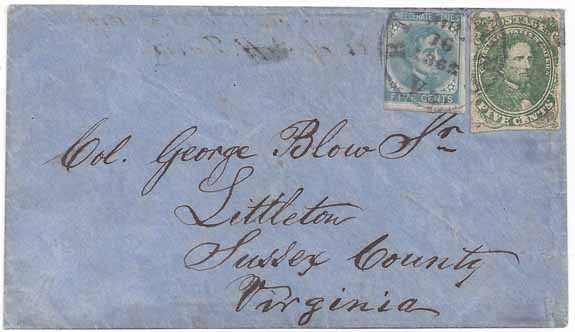 CONFEDERATE STATES
POSTAGE
16
1862
FIVE CENTS
FIVE CENTS
Col. George Blow Sr
Littleton
Sussex County
Virginia